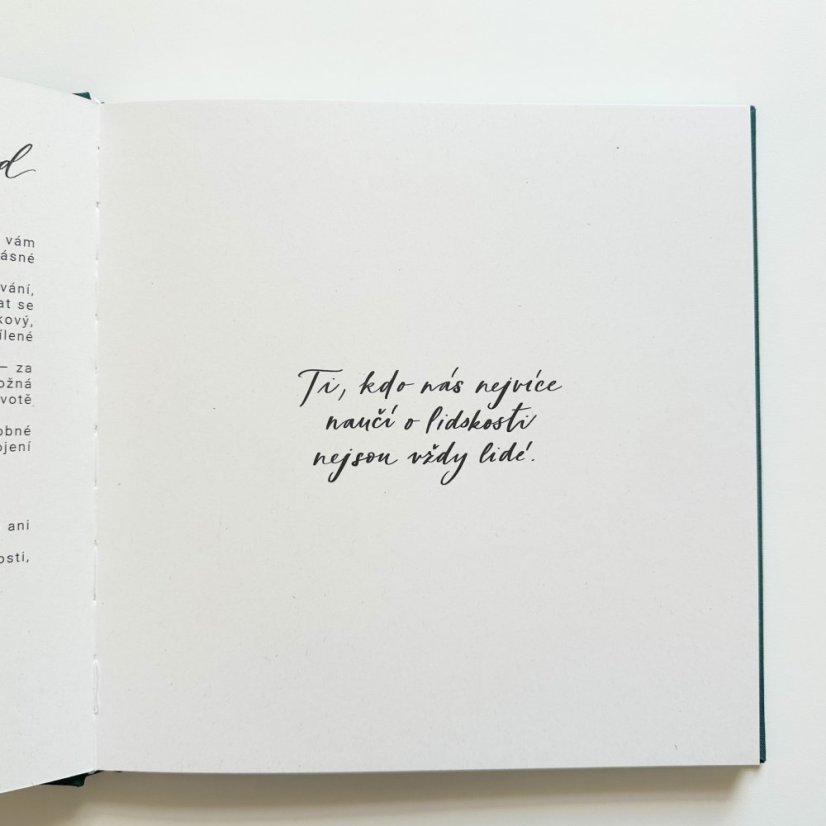 d
vám
ásné
vání,
at se
kový,
ílené
– za
ožná
votě
obné
ojení
ani
osti,
Ti, kdo nás nejvíce
naučí o lidskosti
nejsou vždy lidé.